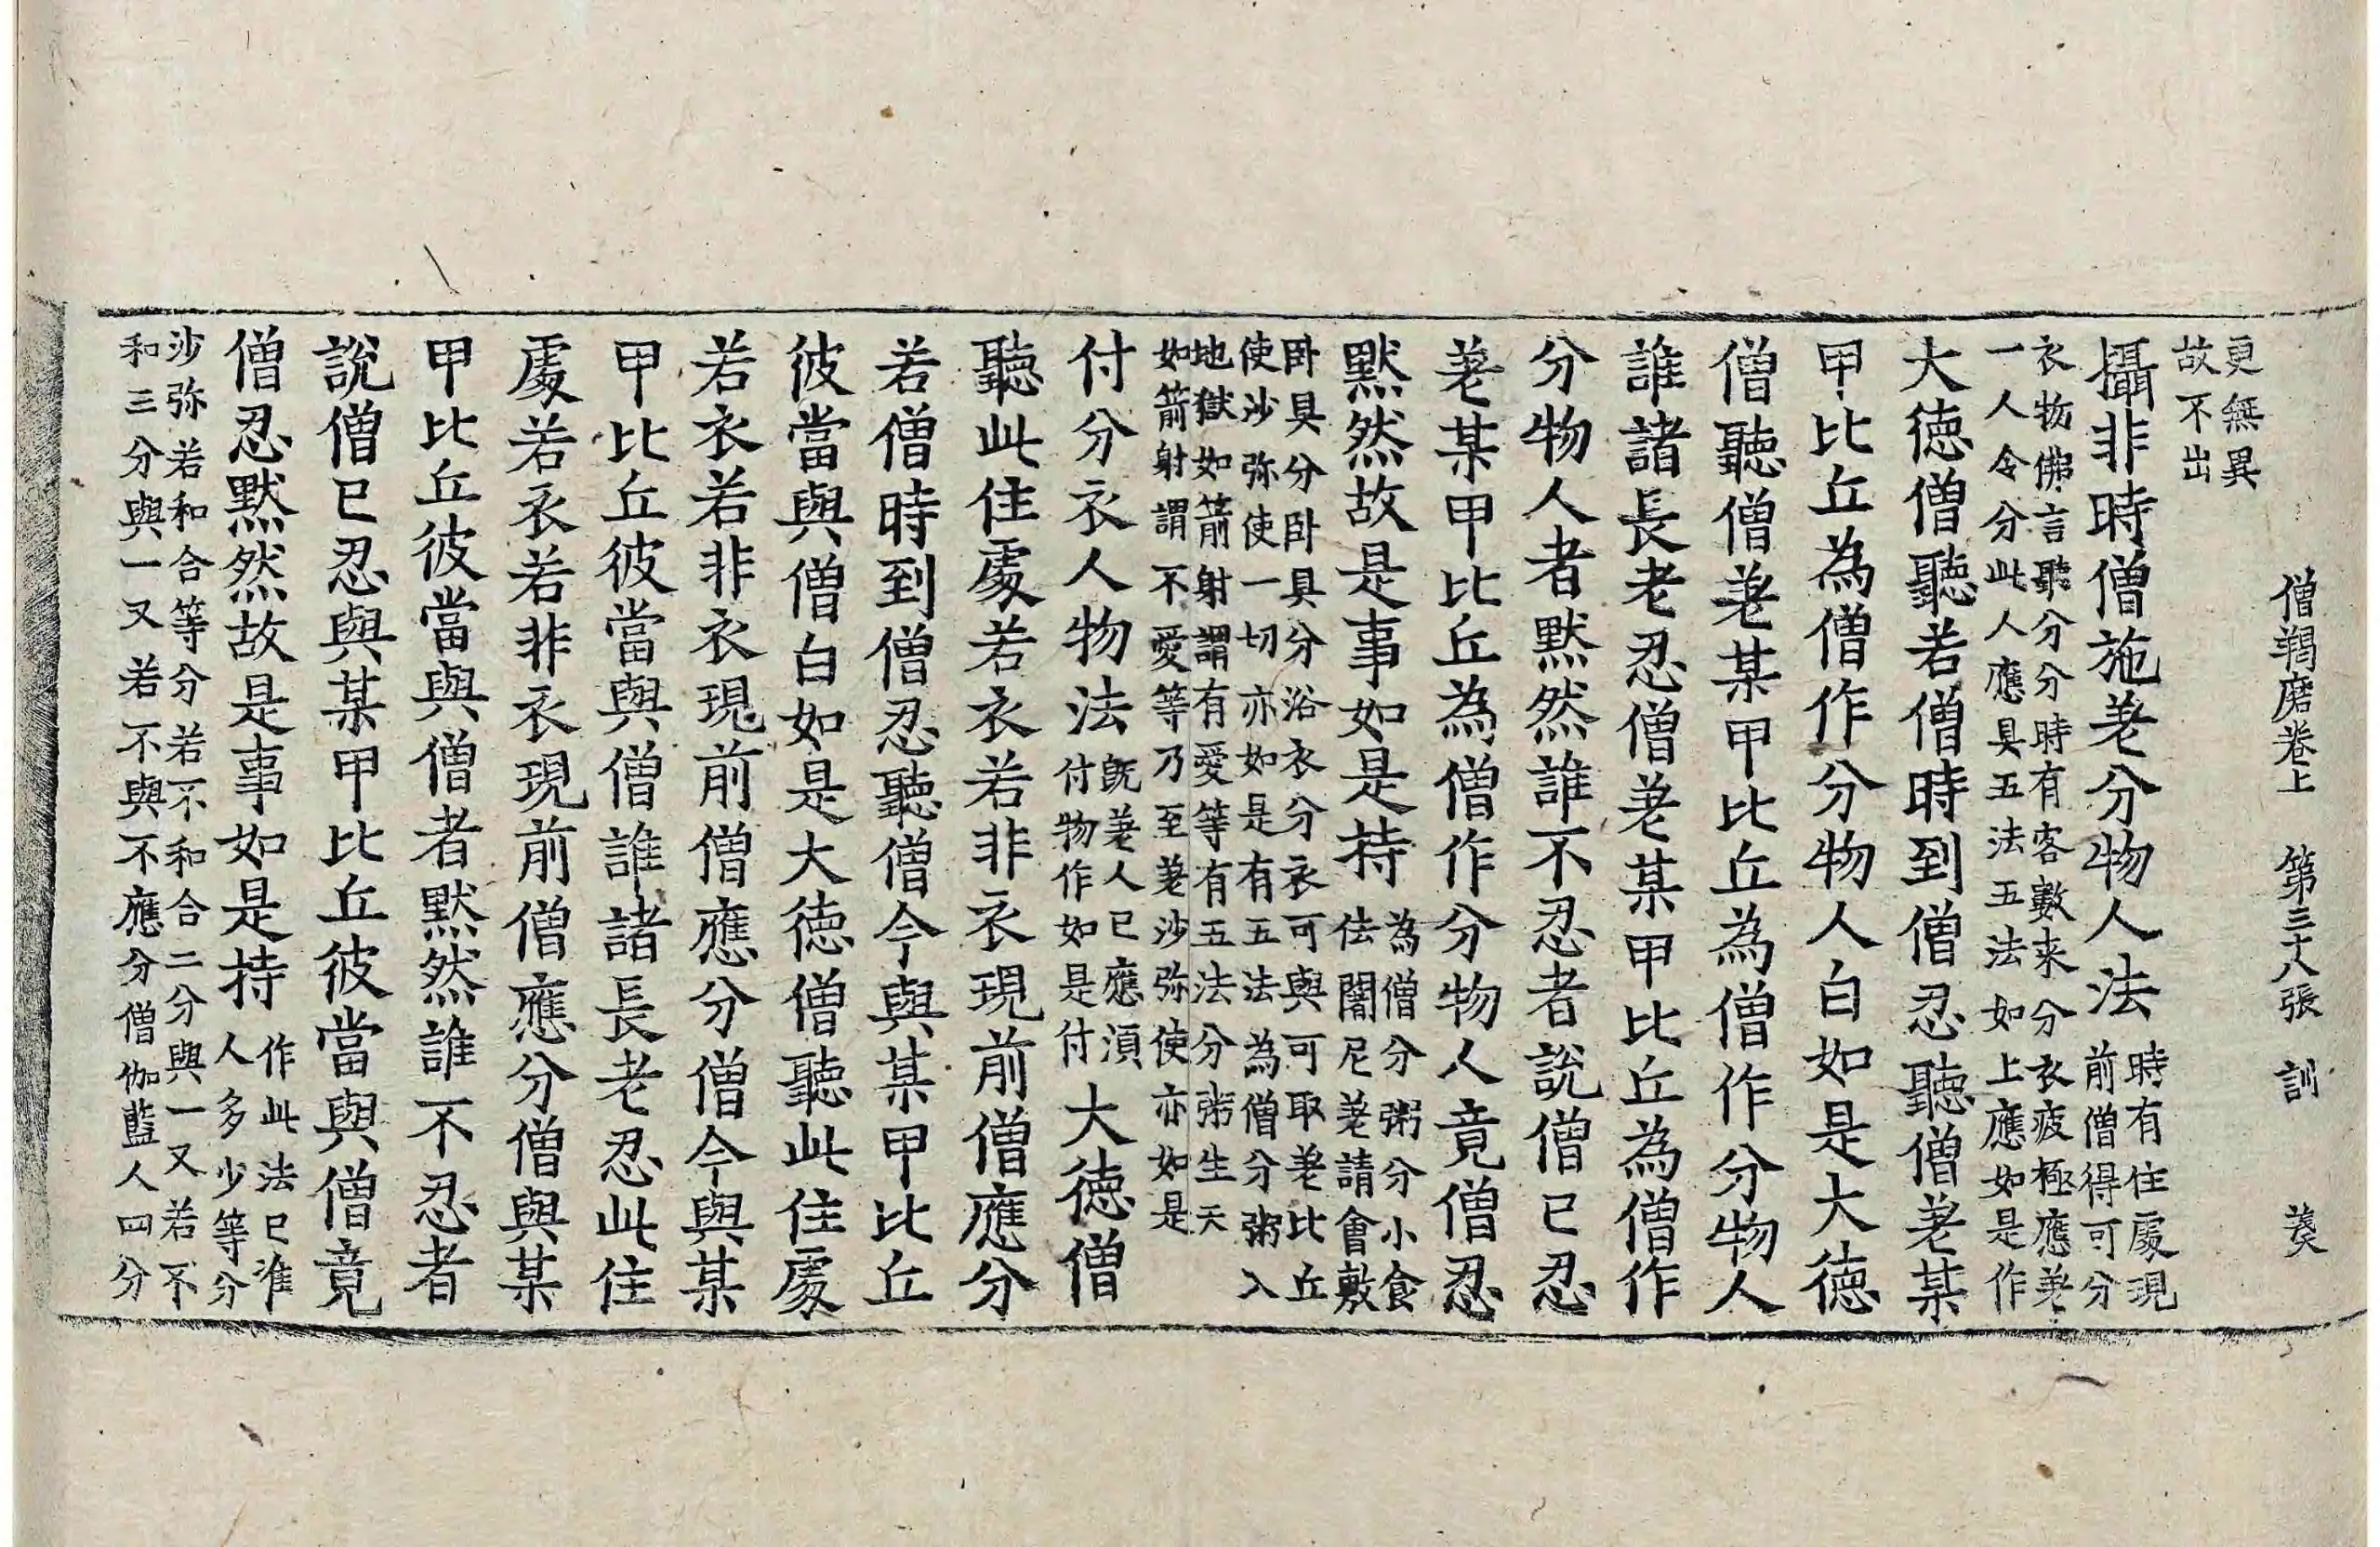 僧羯磨卷上 第三十八張 訓 羙
更無異
故不出
攝非時僧施差分物人法 時有住處現
前僧得可分
衣物佛言聽分分時有客數来分衣疲極應差
一人令分此人應具五法五法如上應如是作
大德僧聽若僧時到僧忍聽僧差某
甲比丘為僧作分物人白如是大德
僧聽僧差某甲比丘為僧作分物人
誰諸長老忍僧差某甲比丘為僧作
分物人者默然誰不忍者說僧已忍
差某甲比丘為僧作分物人竟僧忍
默然故是事如是持 為僧分粥分小食
佉闍尼差請會敷
卧具分卧具分浴衣分衣可與可取差比丘
使沙弥使一切亦如是有五法為僧分粥入
地獄如箭射謂有愛等有五法分粥生天
如箭射謂不愛等乃至差沙弥使亦如是
付分衣人物法 旣差人已應湏
付物作如是付 大德僧
聽此住處若衣若非衣現前僧應分
若僧時到僧忍聽僧今與某甲比丘
彼當與僧白如是大德僧聽此住處
若衣若非衣現前僧應分僧今與某
甲比丘彼當與僧誰諸長老忍此住
處若衣若非衣現前僧應分僧與某
甲比丘彼當與僧者默然誰不忍者
說僧已忍與某甲比丘彼當與僧竟
僧忍默然故是事如是持 作此法已准
人多少等分
沙弥若和合等分若不和合二分與一又若不
和三分與一又若不與不應分僧伽藍人四分